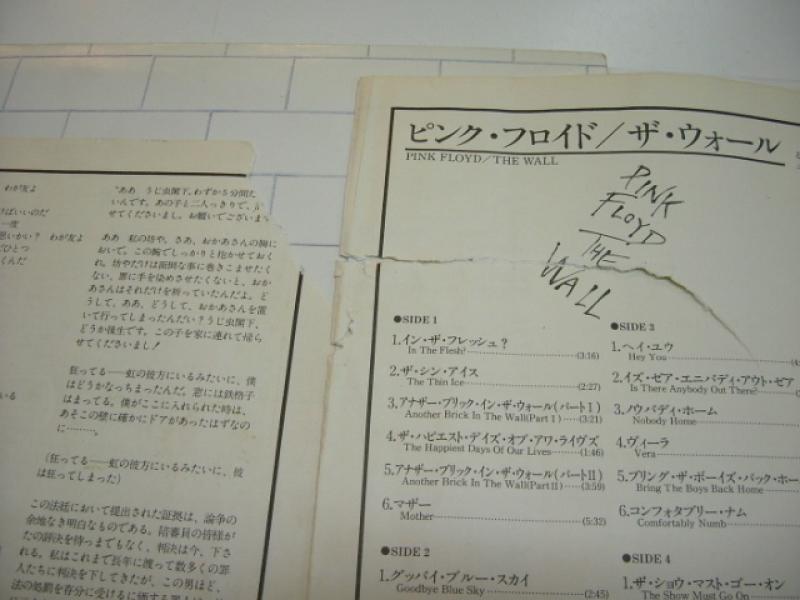 わが友よ
ければいいのだ
一度
思いかい? わが友よ
ひとつ
くんだ
いる
"ああ うじ虫閣下、わずか5分間た
いんです。あの子と二人っきりで、
せてくださいまし。お願いでございま
ああ 私の坊や。さあ、おかあさんの胸に
おいで。この腕でしっかりと抱かせておく
れ。坊やだけは面倒な事に巻きこませたく
ない、罪に手を染めさせたくないと、おか
あさんはそれだけを祈っていたんだよ。ど
うして、ああ、どうして、おかあさんを置
いて行ってしまったんだい?うじ虫閣下、
どうか後生です。この子を家に連れて帰ら
せてくださいまし!
狂ってる——虹の彼方にいるみたいに、僕
はどうかなっちまったんだ。窓には鉄格子
はまってる。僕がここに入れられた時は、
あそこの壁に確かにドアがあったはずなの
に………。
(狂ってる——虹の彼方にいるみたいに、彼
は狂ってしまった)
この法廷において提出された証拠は、論争の
余地なき明白なものである。陪審員の皆様が
たの評決を待つまでもなく、判決は今、下さ
れる。私はこれまで長年に渡って数多くの罪
人たちに判決を下してきたが、この男ほど、
法の処罰を存分に受けるに値する罪人は
ピンク・フロイド/ザ・ウォール
PINK FLOYD/THE WALL
PINK
FLOYD
THE
WALL
●SIDE 1
1.イン・ザ・フレッシュ?
In The Flesh?……(3:16)
2.ザ・シン・アイス
The Thin Ice……(2:27)
3.アナザー・ブリック・イン・ザ・ウォール(パートI)
Another Brick In The Wall(Part I)……(3:21)
4.ザ・ハピエスト・デイズ・オブ・アワ・ライヴズ
The Happiest Days Of Our Lives……(1:46)
5.アナザー・ブリック・イン・ザ・ウォール(パートII)
Another Brick In The Wall(Part II)……(3:59)
6.マザー
Mother……(5:32)
●SIDE 2
1.グッバイ・ブルー・スカイ
Goodbye Blue Sky……(2:45)
●SIDE 3
1.ヘイ・ユウ
Hey You……(4:
2.イズ・ゼア・エニバディ・アウト・ゼア
Is There Anybody Out There?
3.ノウバディ・ホーム
Nobody Home
4.ヴィーラ
Vera
5.ブリング・ザ・ボーイズ・バック・ホー
Bring The Boys Back Home
6.コンフォタブリー・ナム
Comfortably Numb
●SIDE 4
1.ザ・ショウ・マスト・ゴー・オン
The Show Must Go On